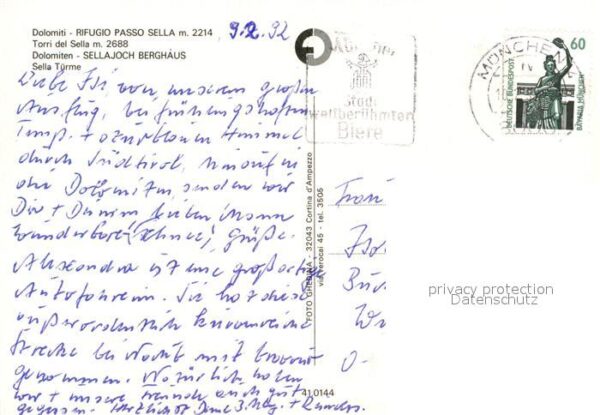 Dolomiti - RIFUGIO PASSO SELLA m. 2214
Torri del Sella m. 2688
Dolomiten - SELLAJOCH BERGHAUS
Sella Türme
9.2.92
Münchner
Stadt
weltberühmten
Biere
MÜNCHEN
60
DEUTSCHE BUNDESPOST
BAVARIA MÜNCHEN
Liebe Isi von unserem großen
Ausflug, bei frühlingshaften
Temp. + azurblauem Himmel
durch Südtirol, hinauf in
die Dolomiten, senden wir
Dir + Deinem lieben Mann
wunderbare (Schnee) Grüße.
Alexandra ist eine großartige
Autofahrerin. Sie hat diese
außerordentlich kurvenreiche
Strecke bei Nacht mit bravour
genommen. Natürlich haben
wir + unsere Freunde auch gut
gegessen. Herzlichst Deine
FOTO GHEDINA - 32043 Cortina d'Ampezzo
via Verocai 45 - tel. 3505
41 0144
Frau
privacy protection
Datenschutz